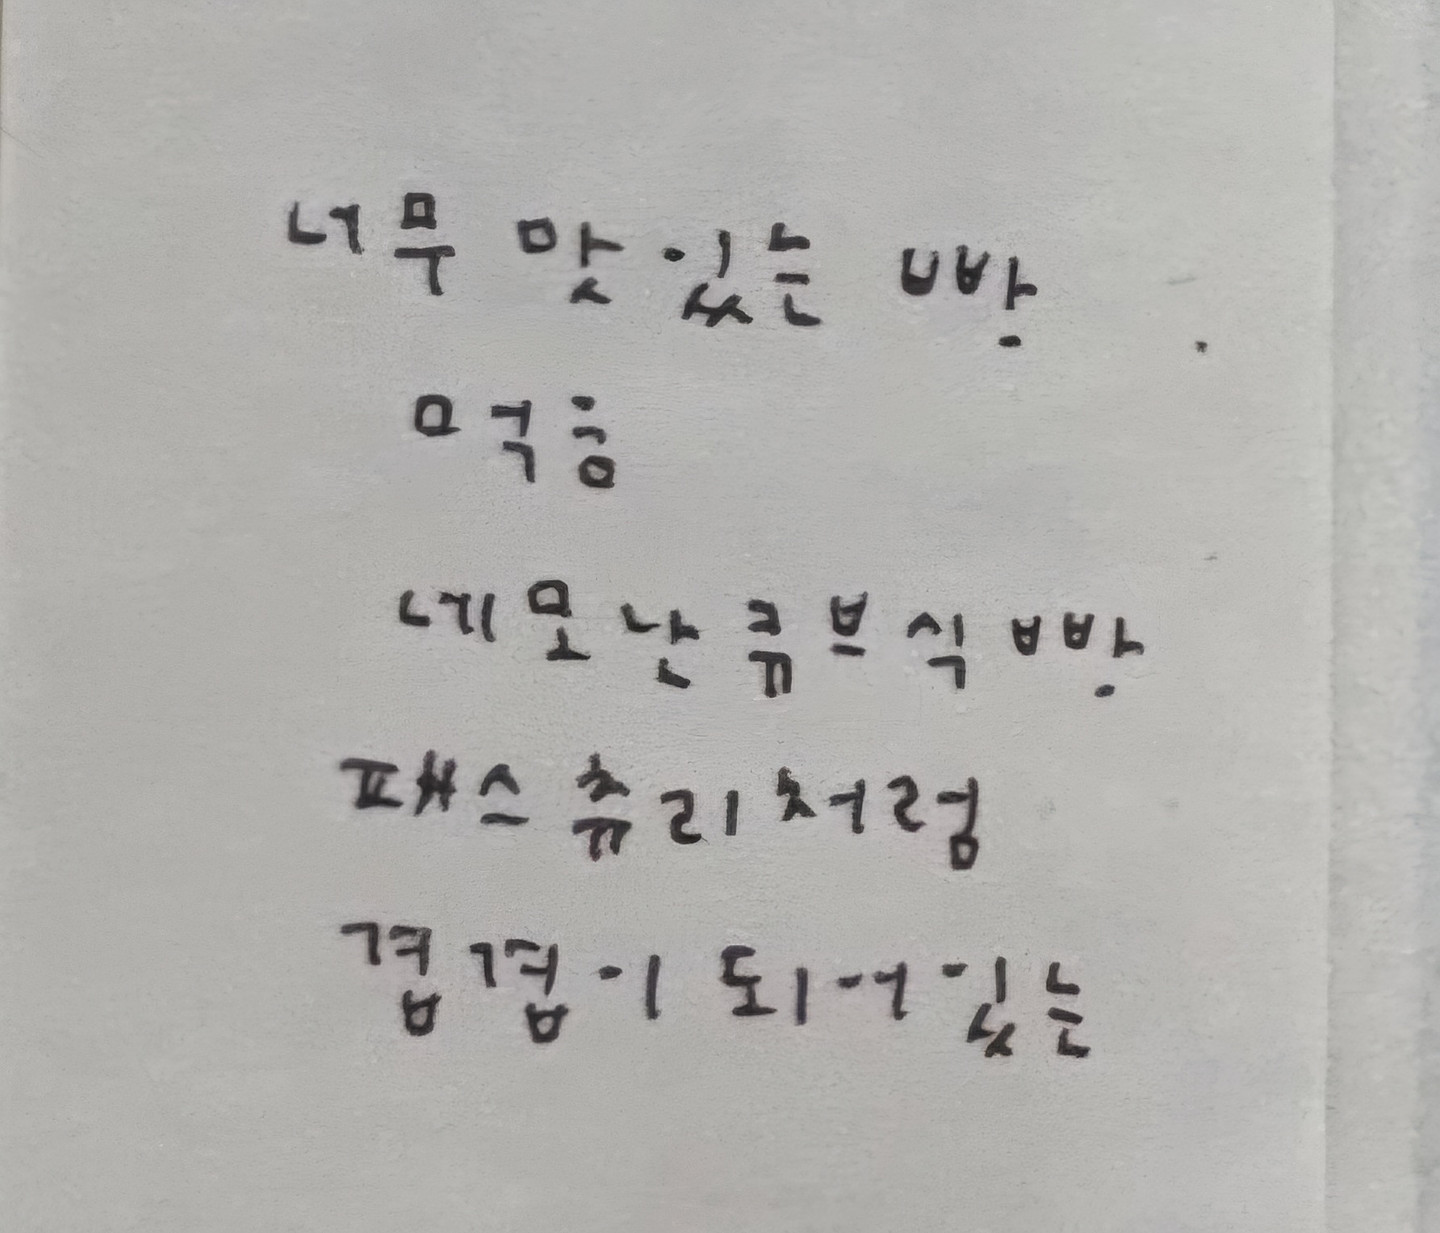 너무 맛있는 빵
먹음
네모난 큐브식 빵
패스츄리처럼
겹겹이 되어있는